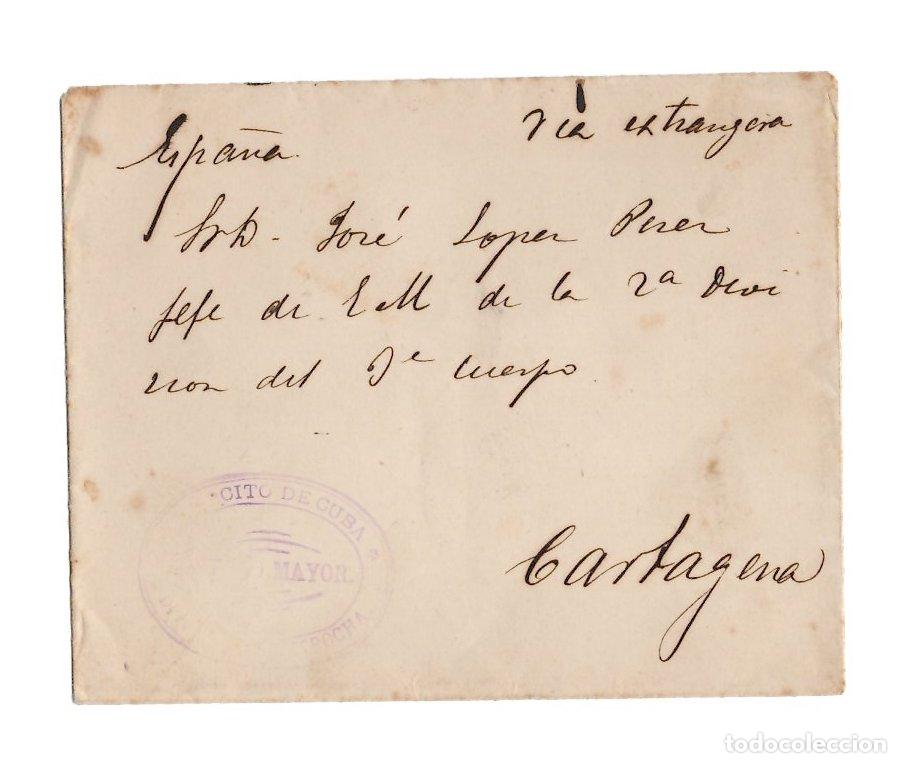 España. Via extrangera
Sr D. José Lopez Perez
Jefe de E M de la 2ª Divi
sion del 3er Cuerpo
Cartagena
CITO DE CUBA
MAYOR.
TROCHA
todocoleccion